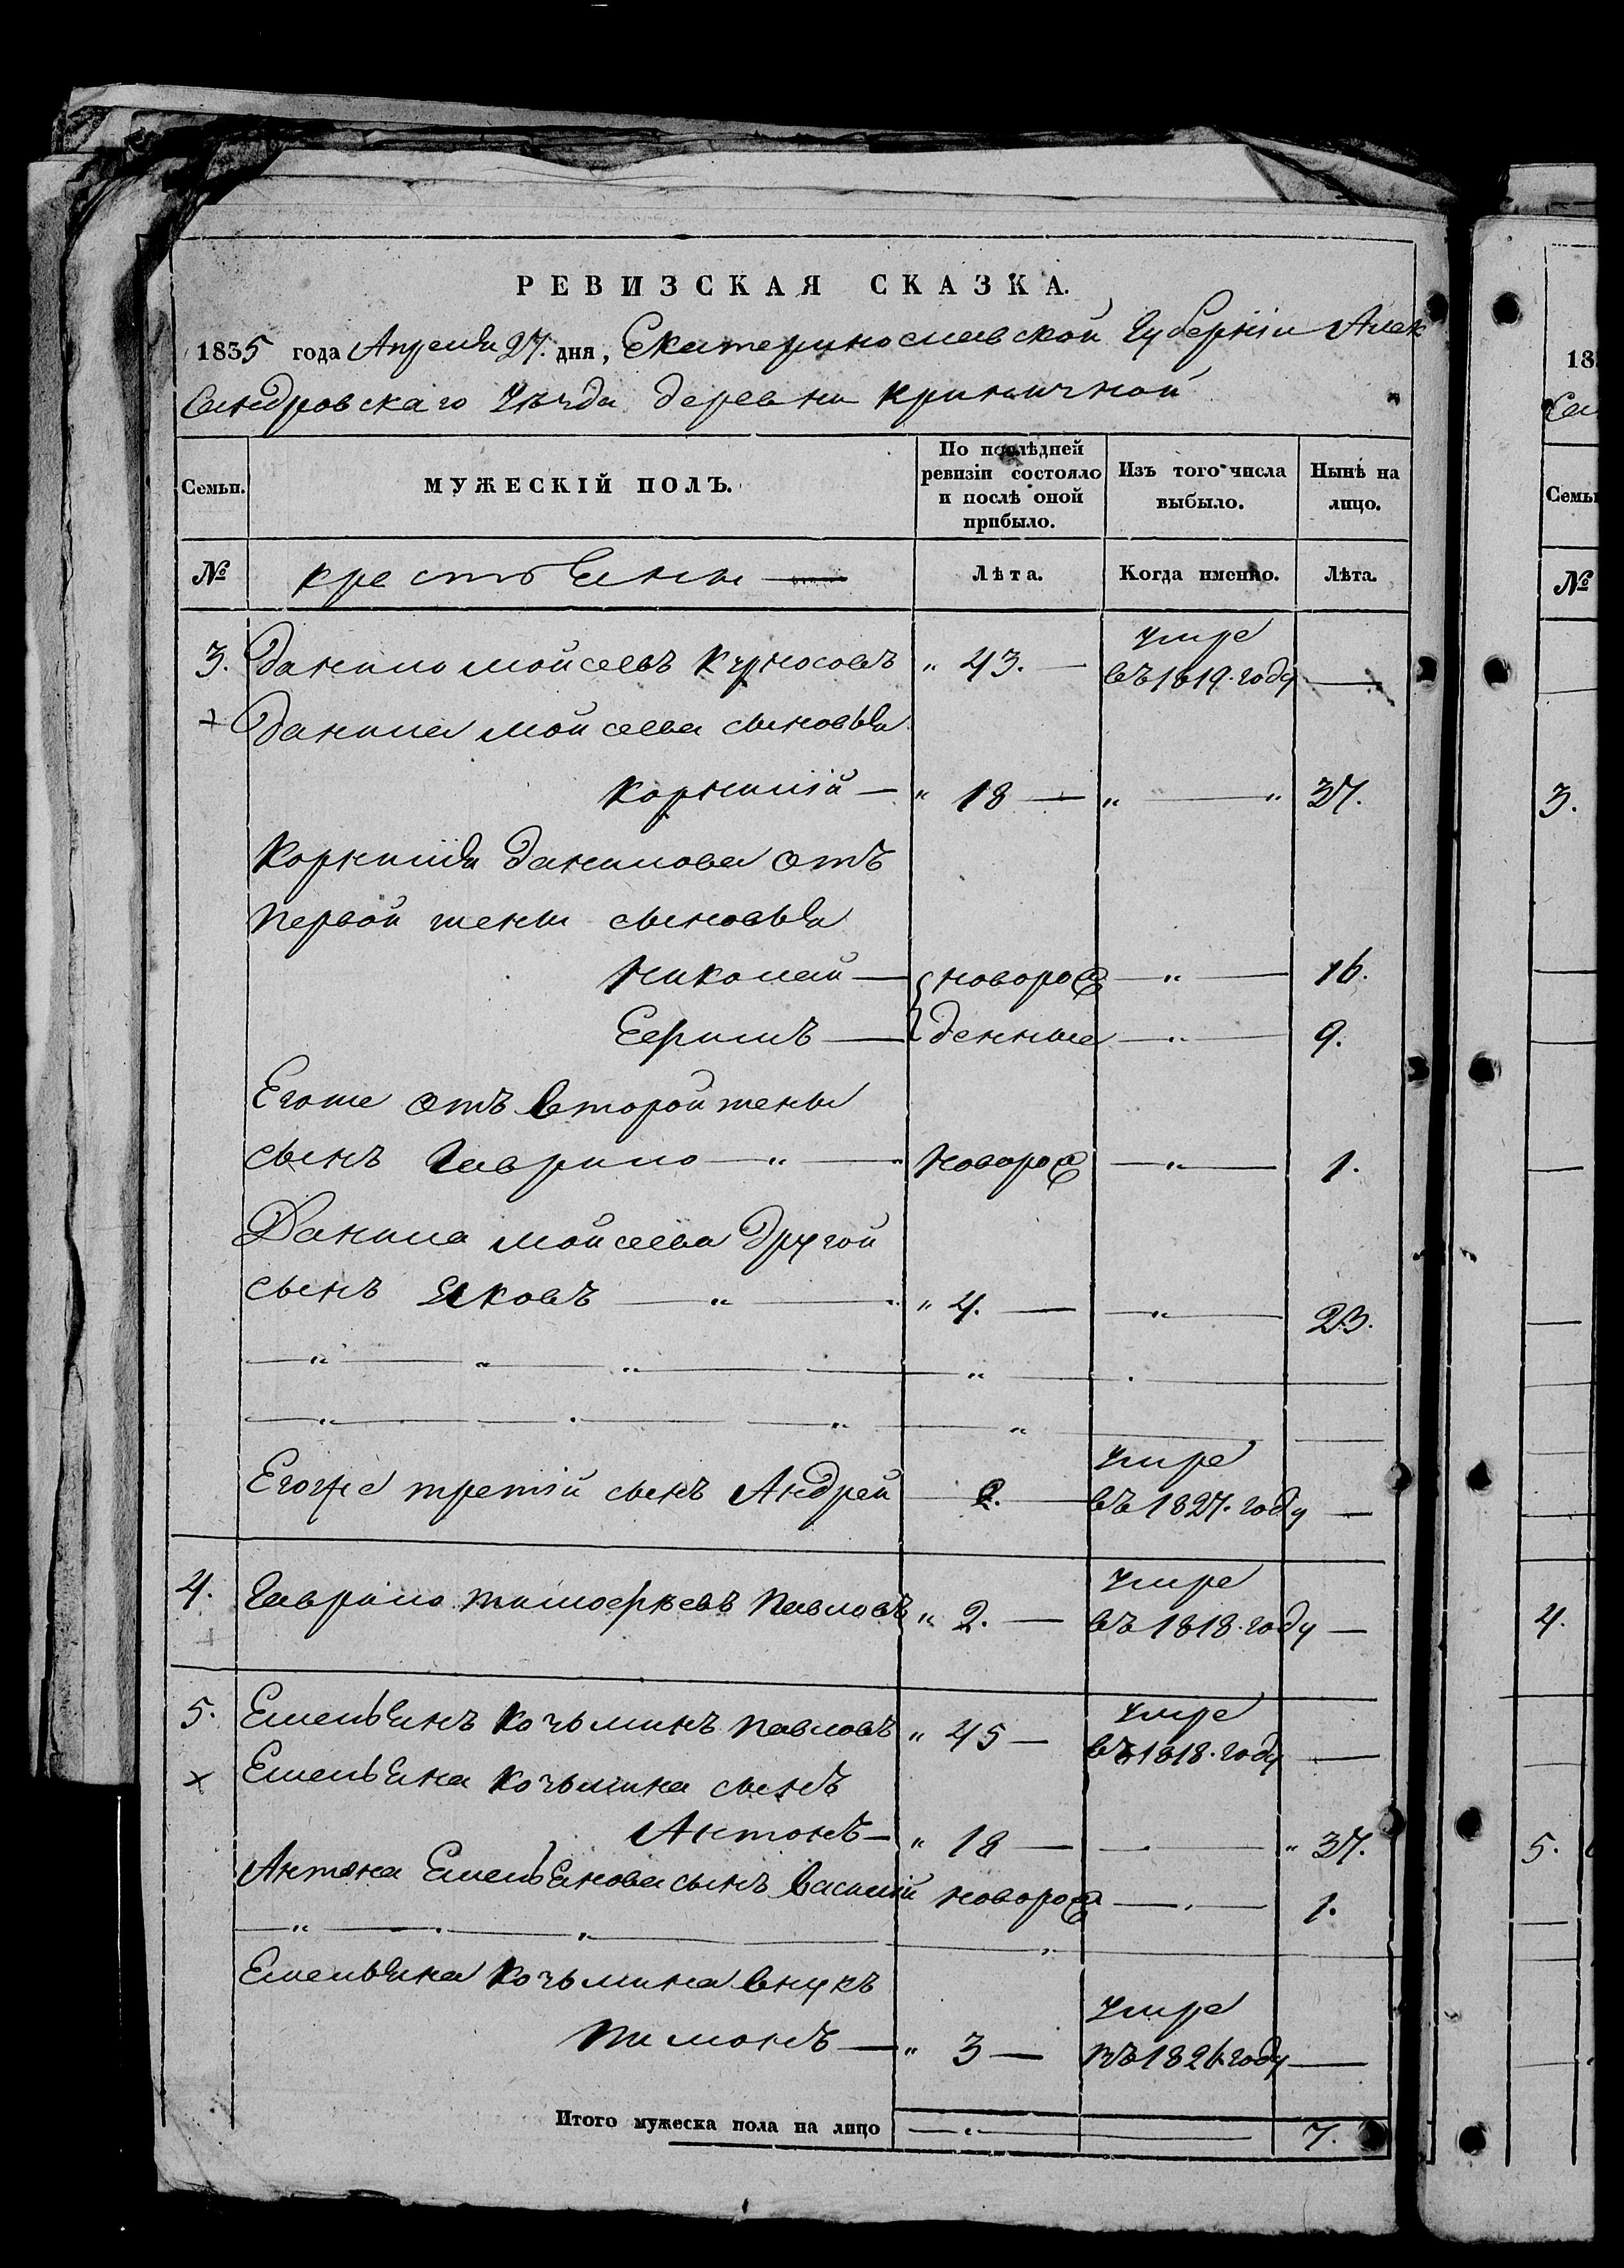 РЕВИЗСКАЯ СКАЗКА.
1835 года Апреля 27. дня, Екатеринославской Губерніи Алек
сандровскаго Уѣзда деревни Криничной
Семьи. МУЖЕСКІЙ ПОЛЪ. По послѣдней ревизіи состояло и послѣ оной прибыло. Изъ того числа выбыло. Нынѣ на лицо.
№ крестьяне Лѣта. Когда именно. Лѣта.
3. Данило Мойсеевъ Курносовъ " 43. — умре въ 1819. году —
Данила Мойсеева сыновья
Корнилій — " 18 — " — " 37.
Корнилія Данилова отъ
первой жены сыновья
Николай — новорож — " — 16.
Ефимъ — денные — " — 9.
Егоже отъ второй жены
сынъ Гаврило — " — новорож — " — 1.
Данила Мойсеева другой
сынъ Яковъ — " — " 4. — — " — 23.
Егоже третій сынъ Андрей — 2. — умре въ 1827. году —
4. Гаврило Тимофѣевъ Павловъ " 2. — умре въ 1818. году —
5. Емельянъ Козьминъ Павловъ " 45 — умре въ 1818. году —
х Емельяна Козьмина сынъ
Антонъ — " 18 — — " 37.
Антона Емельянова сынъ Василій новорож — 1.
Емельяна Козьмина внукъ
Пимонъ — " 3 — умре въ 1826 году —
Итого мужеска пола на лицо — 7.
18
Са
Семьи
№
3.
4.
5.